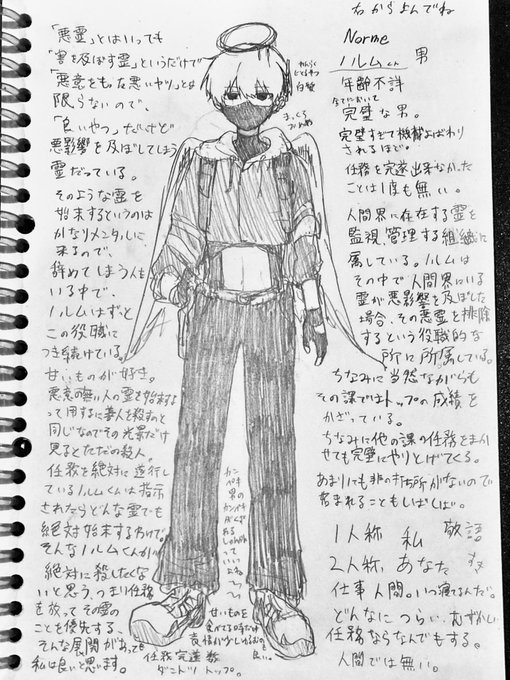 右からよんでね
Norme
ノルムくん 男
年齢不詳
すべてにおいて
完璧な男。
完璧すぎて機械よばわり
されるほど。
任務を完遂出来なかった
ことは1度も無い。
人間界に存在する霊を
監視管理する組織に
属している。ノルムは
その中で人間界にいる
霊が悪影響を及ぼした
場合、その悪霊を排除
するという役職的な
所に所属している。
ちなみに当然ながらも
その課ではトップの成績を
かざっている。
ちなみに他の課の任務をまかせても完璧にやりとげてくる。
あまりにも非の打ち所がないので
営まれることもしばしば。
1人称 私 敬語
2人称 あなた
仕事人間。いつ寝てるんだ。
どんなにつらい、むずかしい
任務ならなんでもする。
人間では無い。
「悪霊」とはいっても
「害を及ぼす霊」というだけで
「悪意をもった悪いやつ」とは
限らないので、
「良いやつ」だけど
悪影響を及ぼしてしまう
霊だっている。
そのような霊を
始末するというのは
かなりメンタルに
来るので、
辞めてしまう人も
いる中で、
ノルムはずっと
この役職に
つき続けている。
甘いものが好き。
悪意の無い人の霊を始末する
って用するに善人を殺すのと
同じなのでその光景だけ
見るとただの殺人。
任務を絶対に遂行し
ているノルムくんは指示
されたらどんな霊でも
絶対始末するわけで。
そんなノルムくんが
絶対に殺したくな
いと思う、つまり任務
を放ってその霊の
ことを優先する、
そんな展開があっても
私は良いと思います。
白髪
まっくろ
カンペキ
男の
カンペキ
がくずれる
しゅんかん
って
いい
よね
甘いものを
食べてる時だけ
表情が少しゆるむのも
良い。
任務完遂数
ダントツトップ。